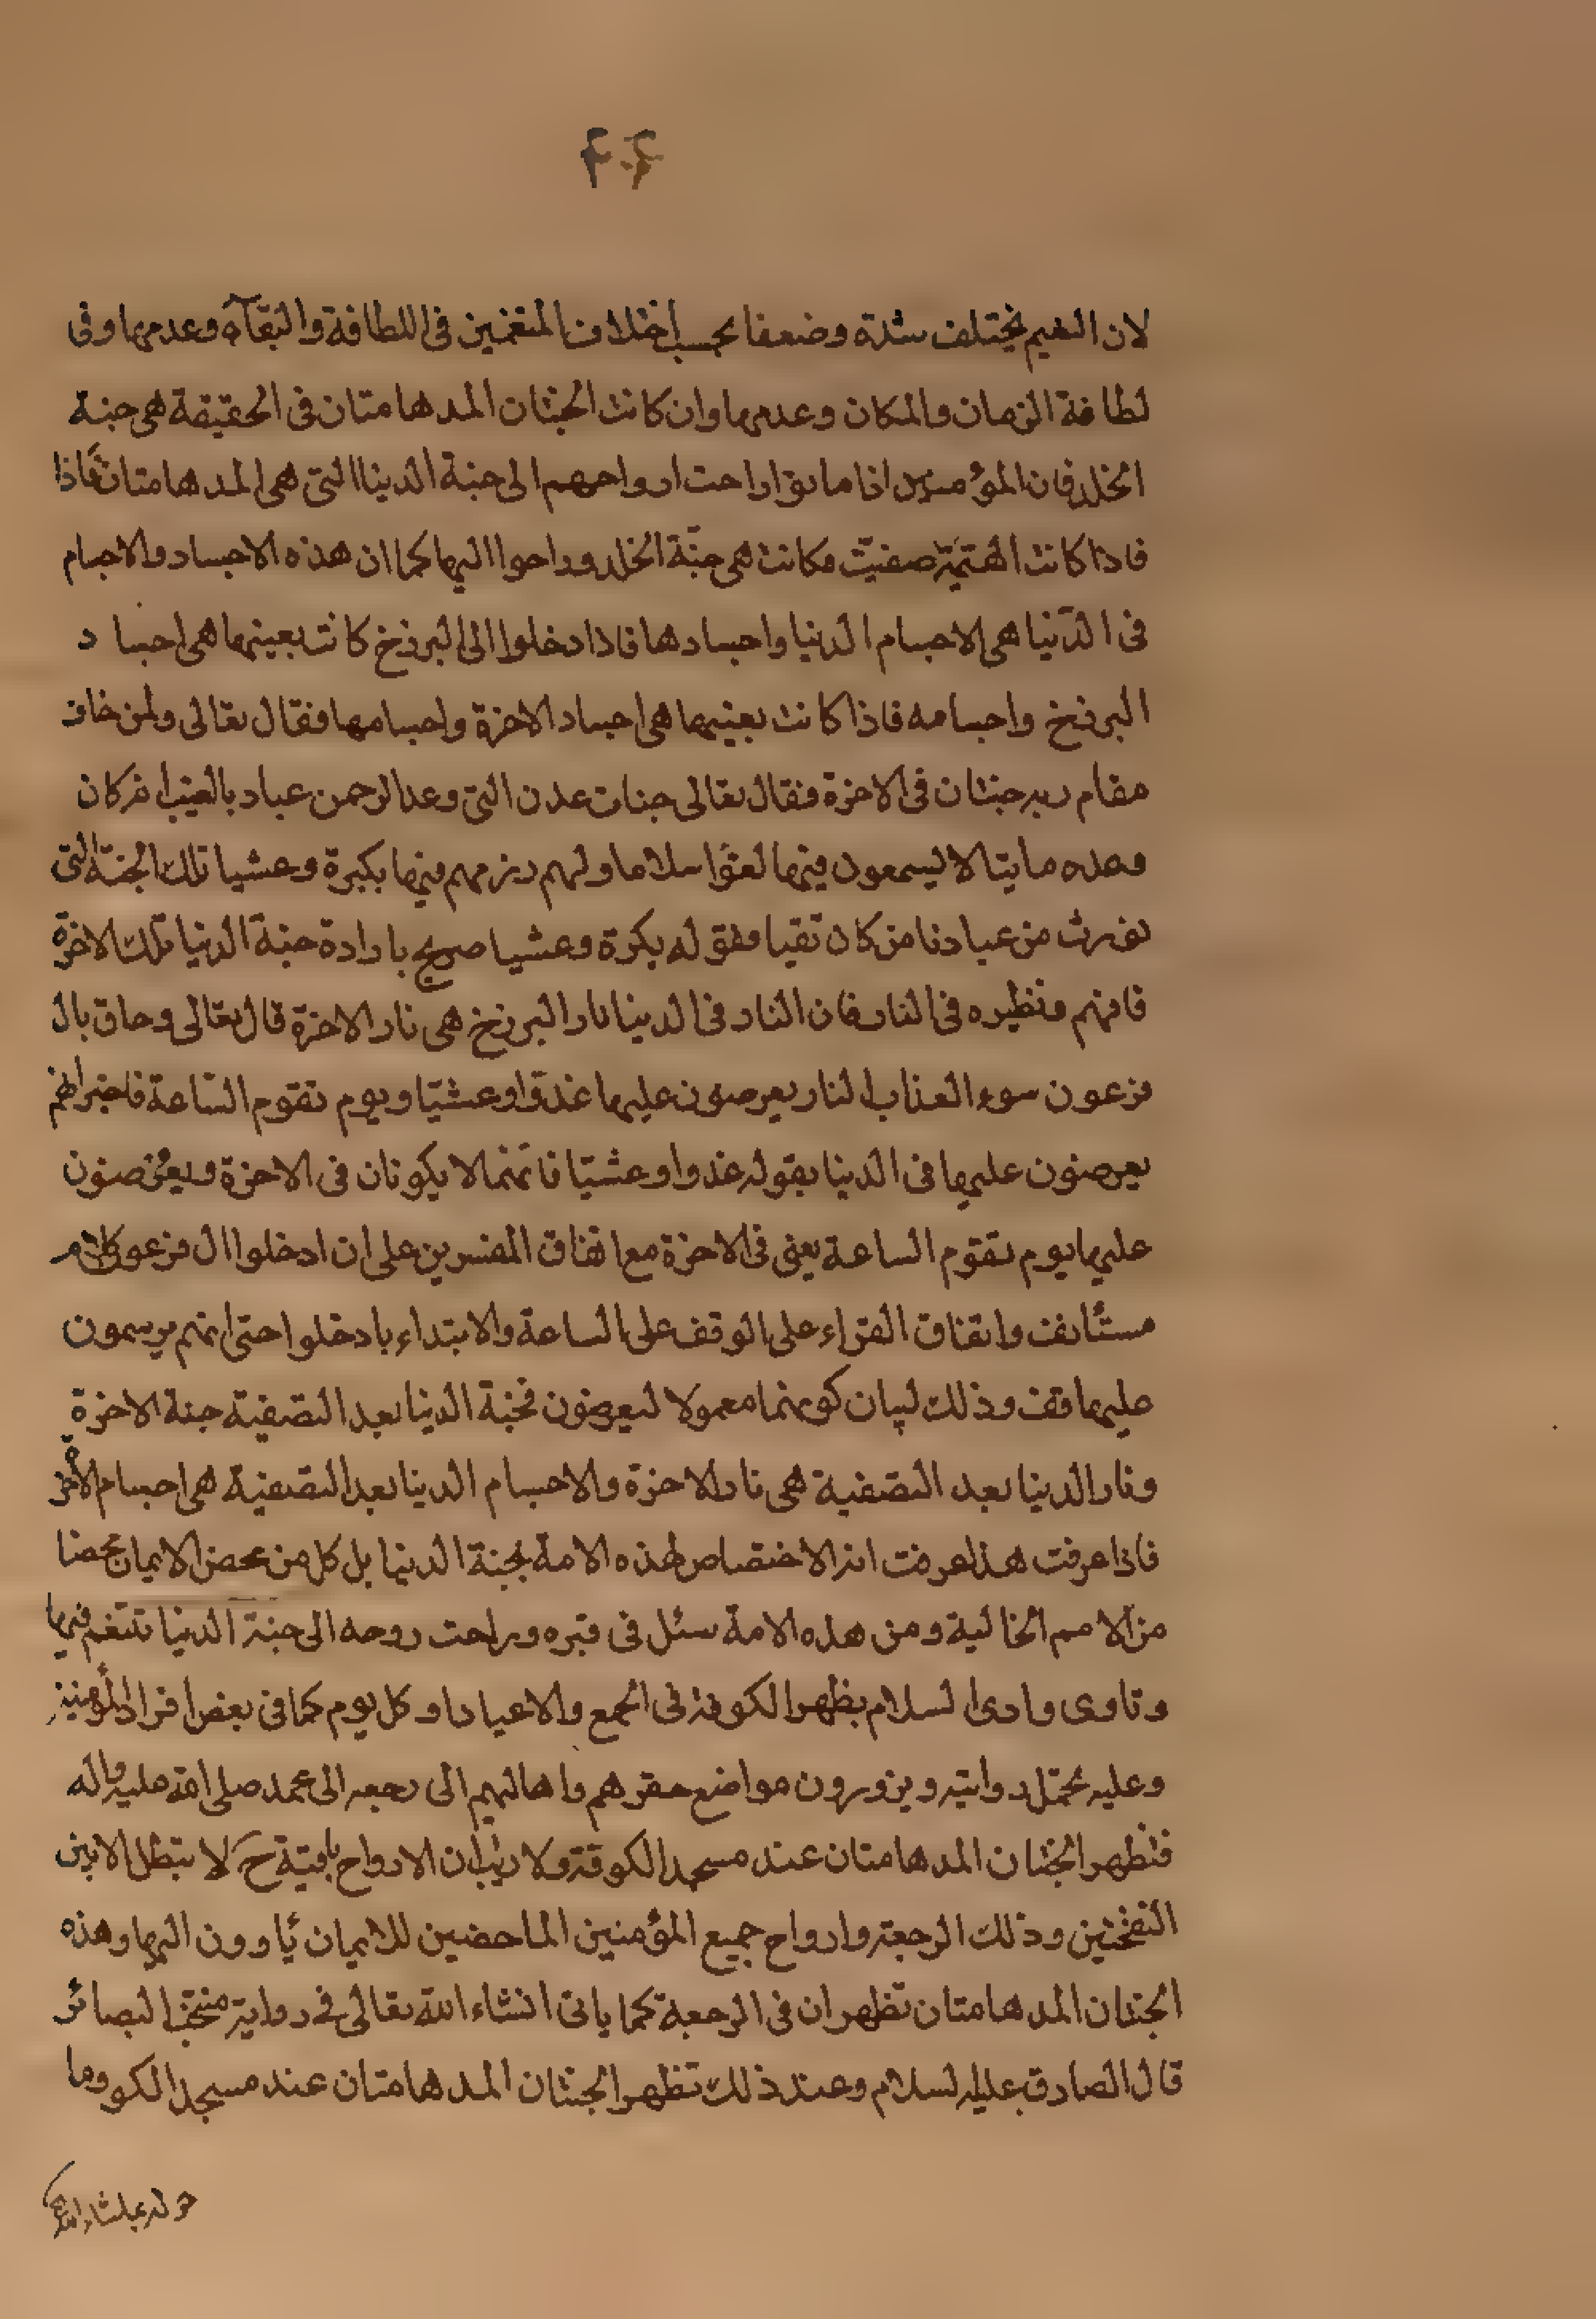 ۴۰۴
لان النعيم يختلف شدة وضعفا بحسب اختلاف المتنعمين فى اللطافة والبقآء وعدمها وفى
لطافة الزمان والمكان وعدمها وان كانت الجنتان المدهامتان فى الحقيقة هى جنة
الخلد فان المؤمنين اذا ماتوا راحت ارواحهم الى جنة الدنيا التى هى المدهامتان فاذا
فاذا كانت القيمة صفيت وكانت هى جنة الخلد وراحوا اليها كما ان هذه الاجساد والاجسام
فى الدنيا هى الاجسام الدنيا واجسادها فاذا دخلوا الى البرزخ كانت بعينها هى اجساد
البرزخ واجسامه فاذا كانت بعينها هى اجساد الاخرة واجسامها فقال تعالى ولمن خاف
مقام ربه جنتان فى الاخرة فقال تعالى جنات عدن التى وعد الرحمن عباده بالغيب انه كان
وعده ماتيا لا يسمعون فيها لغوا سلاما ولهم رزقهم فيها بكرة وعشيا تلك الجنة التى
نورث من عبادنا من كان تقيا وفقوله بكرة وعشيا صريح بارادة جنة الدنيا تلك الاخرة
فافهم ونظيره فى النار فان النار فى الدنيا نار البرزخ هى نار الاخرة قال تعالى وحاق بال
فرعون سوء العذاب النار يعرضون عليها غدوا وعشيا ويوم تقوم الساعة فاخبر انهم
يعرضون عليها فى الدنيا بقوله غدوا وعشيا فانهما لا يكونان فى الاخرة ويعرضون
عليها يوم تقوم الساعة يعنى فى الاخرة مع اتفاق المفسرين على ان ادخلوا ال فرعون كلام
مستأنف واتفاق القراء على الوقف على الساعة والابتداء بادخلوا حتى انهم يرسمون
عليها قف وذلك لبيان كونهما معمولا ليعرضون فجنة الدنيا بعد التصفية جنة الاخرة
ونار الدنيا بعد التصفية هى نار الاخرة والاجسام الدنيا بعد التصفية هى اجسام الاخرة
فاذا عرفت هذا عرفت انه لا اختصاص لهذه الامة بجنة الدنيا بل كل من محض الايمان محضا
من الامم الخالية ومن هذه الامة سئل فى قبره وراحت روحه الى جنة الدنيا تتنعم فيها
وتاوى وادى السلام بظهر الكوفة فى الجمع والاعياد او كل يوم كما فى بعض افراد المؤمنين
وعليه يحتمل رواية ويزورون مواضع حفرهم واهاليهم الى رجعه الى محمد صلى الله عليه واله
فتظهر الجنتان المدهامتان عند مسجد الكوفة ولا ريب ان الارواح باقية ح لا تبطل الا بين
النفختين وذلك الرجعة وارواح جميع المؤمنين الماحضين للايمان يأوون اليها وهذه
الجنتان المدهامتان تظهران فى الرجعة كما ياتى انشاء الله تعالى فى رواية منتخب البصائر
قال الصادق عليه السلام وعند ذلك تظهر الجنتان المدهامتان عند مسجد الكو وما
حوله بماشاء الله